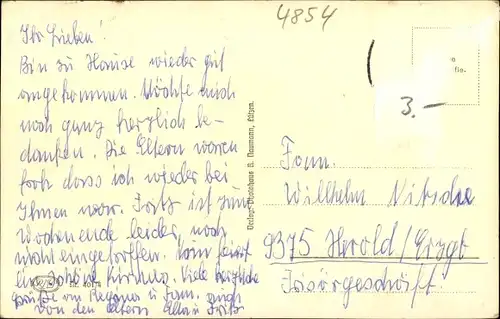 4854
Ihr Lieben!
Bin zu Hause wieder gut
angekommen. Möchte mich
noch ganz herzlich be-
danken. Die Eltern waren
froh dass ich wieder bei
Ihnen war. Fritz ist zum
Wochenende leider noch
nicht eingetroffen.
ein schöne Kirmes. Viele herzliche
Grüße an u. Fam. auch
von den Eltern Fritz
Verlag: Photohaus B. Naumann, Lützen.
3.-
Fam.
Willhelm Nitzsche
9375 Herold/Erzgb
Frisörgeschäft.